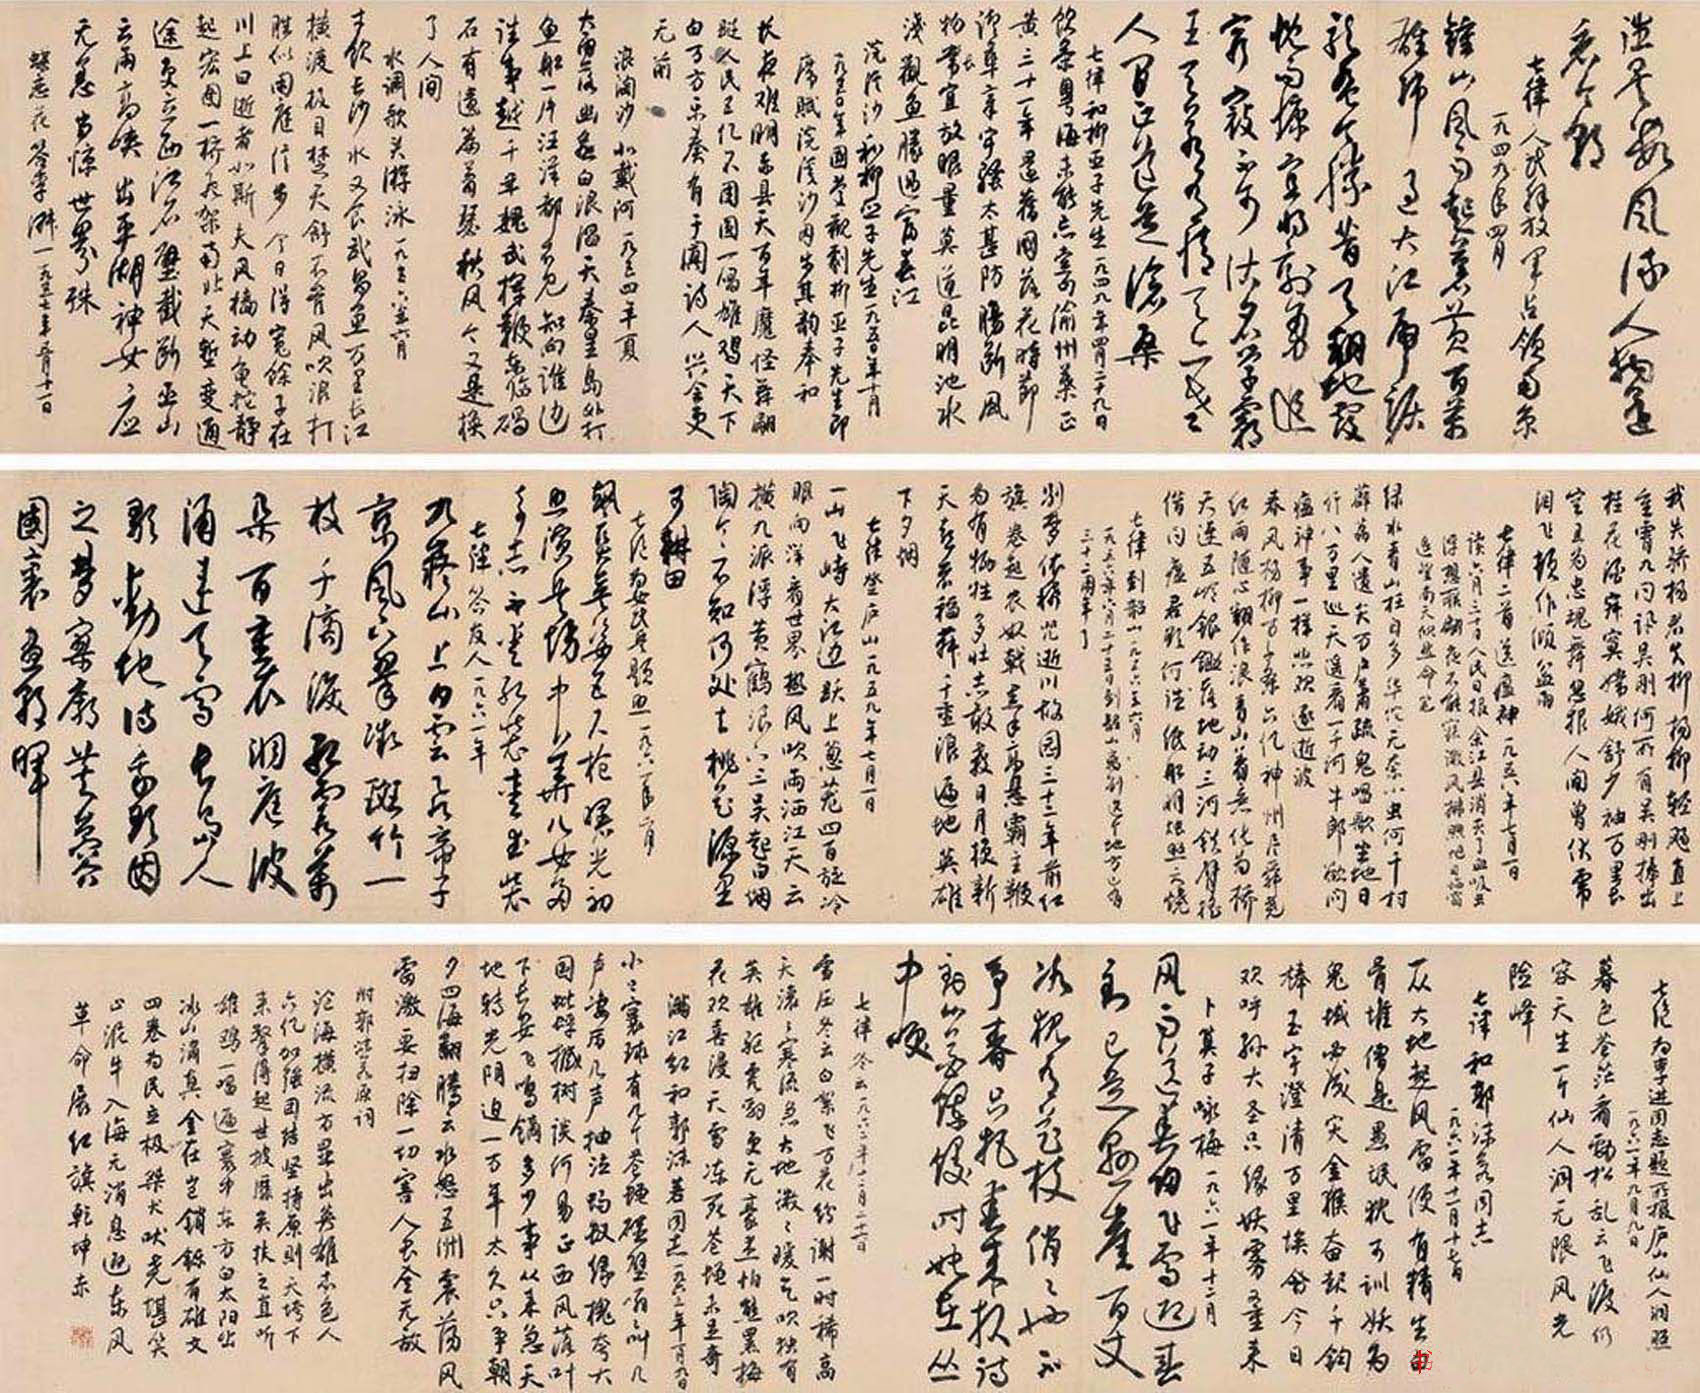 数风流人物还
看今朝
七律 人民解放军占领南京
一九四九年四月
钟山风雨起苍黄百万
雄师过大江虎踞
龙盘今胜昔天翻地覆
慨而慷宜将剩勇追
穷寇不可沽名学霸
王天若有情天亦老
人间正道是沧桑
七律 和柳亚子先生 一九四九年四月二十九日
饮茶粤海未能忘索句渝州葉正
黄三十一年还舊国落花時節
讀华章牢骚太盛防腸断风
物长宜放眼量莫道昆明池水
浅觀鱼勝過富春江
浣溪沙 和柳亚子先生 一九五〇年十月
一九五〇年國慶觀剧柳亚子先生即
席赋浣溪沙因步其韵奉和
长夜难明赤县天百年魔怪舞翩
跹人民五亿不团圆一唱雄鸡天下
白万方乐奏有于阗诗人兴会更
无前
浪淘沙 北戴河 一九五四年夏
大雨落幽燕白浪滔天秦皇島外打
鱼船一片汪洋都不见知向谁边
往事越千年魏武揮鞭东临碣
石有遗篇萧瑟秋风今又是换
了人间
水调歌头 游泳 一九五六年六月
才饮长沙水又食武昌鱼万里长江
横渡极目楚天舒不管风吹浪打
胜似闲庭信步今日得宽馀子在
川上曰逝者如斯夫风樯动龟蛇静
起宏图一桥飞架南北天堑变通
途更立西江石壁截断巫山
云雨高峡出平湖神女应
无恙当惊世界殊
蝶恋花 答李淑一 一九五七年五月十一日
我失骄杨君失柳杨柳轻飏直上
重霄九问讯吴刚何所有吴刚捧出
桂花酒寂寞嫦娥舒广袖万里长
空且为忠魂舞忽报人间曾伏虎
泪飞顿作倾盆雨
七律二首 送瘟神 一九五八年七月一日
读六月三十日人民日报余江县消灭了血吸虫
浮想联翩夜不能寐微风拂煦旭日临窗
遥望南天欣然命笔
绿水青山枉自多华佗无奈小虫何千村
薜荔人遗矢万户萧疏鬼唱歌坐地日
行八万里巡天遥看一千河牛郎欲问
瘟神事一样悲欢逐逝波
春风杨柳万千条六亿神州尽舜尧
红雨随心翻作浪青山着意化为桥
天连五岭银锄落地动三河铁臂摇
借问瘟君欲何往纸船明烛照天烧
七律 到韶山 一九五九年六月
一九五九年六月二十五日到韶山离别这个地方已有
三十二周年了
别梦依稀咒逝川故园三十二年前红
旗卷起农奴戟黑手高悬霸主鞭
为有牺牲多壮志敢教日月换新
天喜看稻菽千重浪遍地英雄
下夕烟
七律 登庐山 一九五九年七月一日
一山飞峙大江边跃上葱茏四百旋冷
眼向洋看世界热风吹雨洒江天云
横九派浮黄鹤浪下三吴起白烟
陶令不知何处去桃花源里
可耕田
七绝 为女民兵题照 一九六一年二月
飒爽英姿五尺枪曙光初
照演兵场中华儿女多
奇志不爱红装爱武装
七律 答友人 一九六一年
九嶷山上白云飞帝子
乘风下翠微斑竹一
枝千滴泪红霞万
朵百重衣洞庭波
涌连天雪长岛人
歌动地诗我欲因
之梦寥廓芙蓉
國裏盡朝暉
七绝 为李进同志题所摄庐山仙人洞照
一九六一年九月九日
暮色苍茫看劲松乱云飞渡仍
从容天生一个仙人洞无限风光
险峰
七律 和郭沫若同志
一九六一年十一月十七日
一从大地起风雷便有精生白
骨堆僧是愚氓犹可训妖为
鬼蜮必成灾金猴奋起千钧
棒玉宇澄清万里埃今日
欢呼孙大圣只缘妖雾又重来
卜算子 咏梅 一九六一年十二月
风雨送春归飞雪迎春
到已是悬崖百丈
冰犹有花枝俏俏也不
争春只把春来报待
到山花烂漫时她在丛
中笑
七律 冬云 一九六二年十二月二十六日
雪压冬云白絮飞万花纷谢一时稀高
天滚滚寒流急大地微微暖气吹独有
英雄驱虎豹更无豪杰怕熊罴梅
花欢喜漫天雪冻死苍蝇未足奇
满江红 和郭沫若同志 一九六三年一月九日
小小寰球有几个苍蝇碰壁嗡嗡叫几
声凄厉几声抽泣蚂蚁缘槐夸大
国蚍蜉撼树谈何易正西风落叶
下长安飞鸣镝多少事从来急天
地转光阴迫一万年太久只争朝
夕四海翻腾云水怒五洲震荡风
雷激要扫除一切害人虫全无敌
附郭沫若原词
沧海横流方显出英雄本色人
六亿加强团结坚持原则天垮下
来擎得起世披靡矣扶之直听
雄鸡一唱遍寰中东方白太阳出
冰山滴真金在岂销铄有雄文
四卷为民立极桀犬吠尧堪笑
止泥牛入海无消息迎东风
革命展红旗乾坤赤